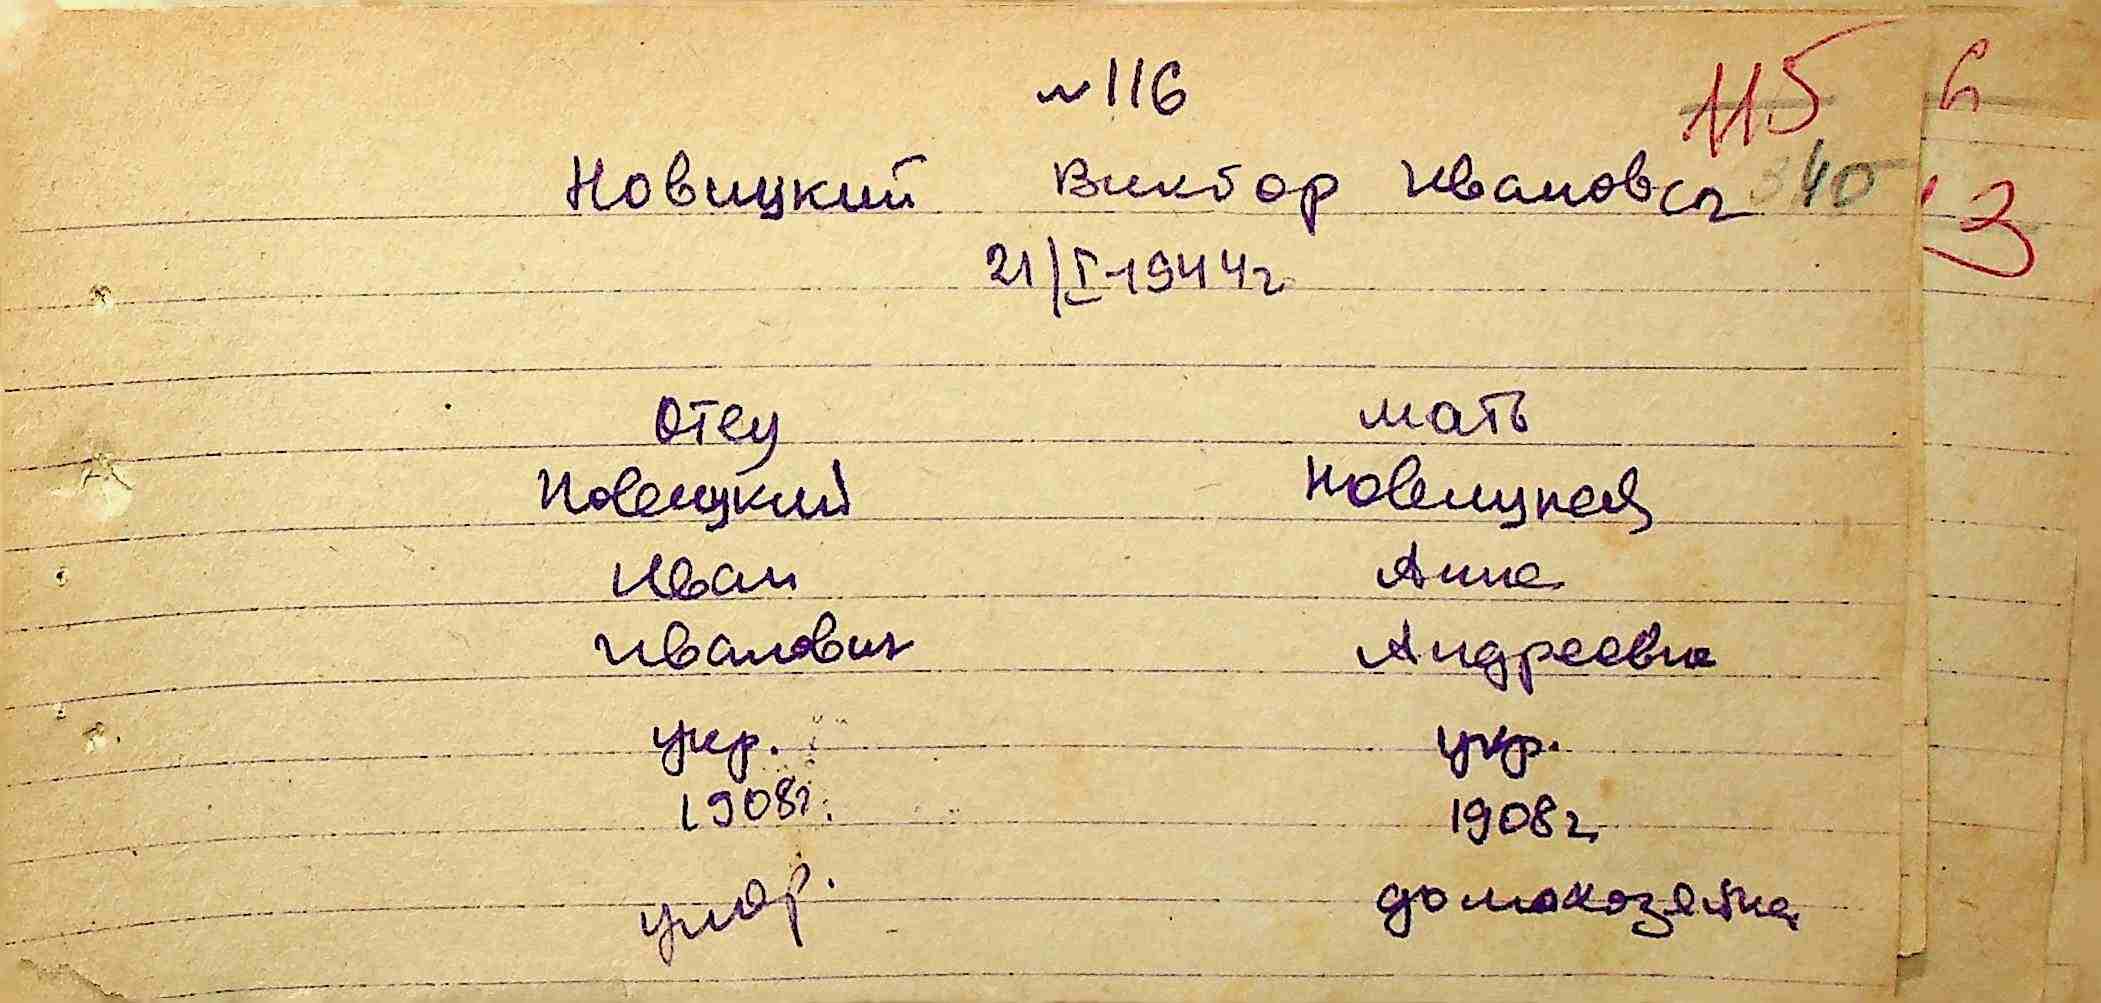 №116
115
Новицкий Виктор Иванович
340
3
21/I-1944г
отец мать
Новицкий Новицкая
Иван Анна
Иванович Андреевна
укр. укр.
1908г. 1908г
домохозяйка